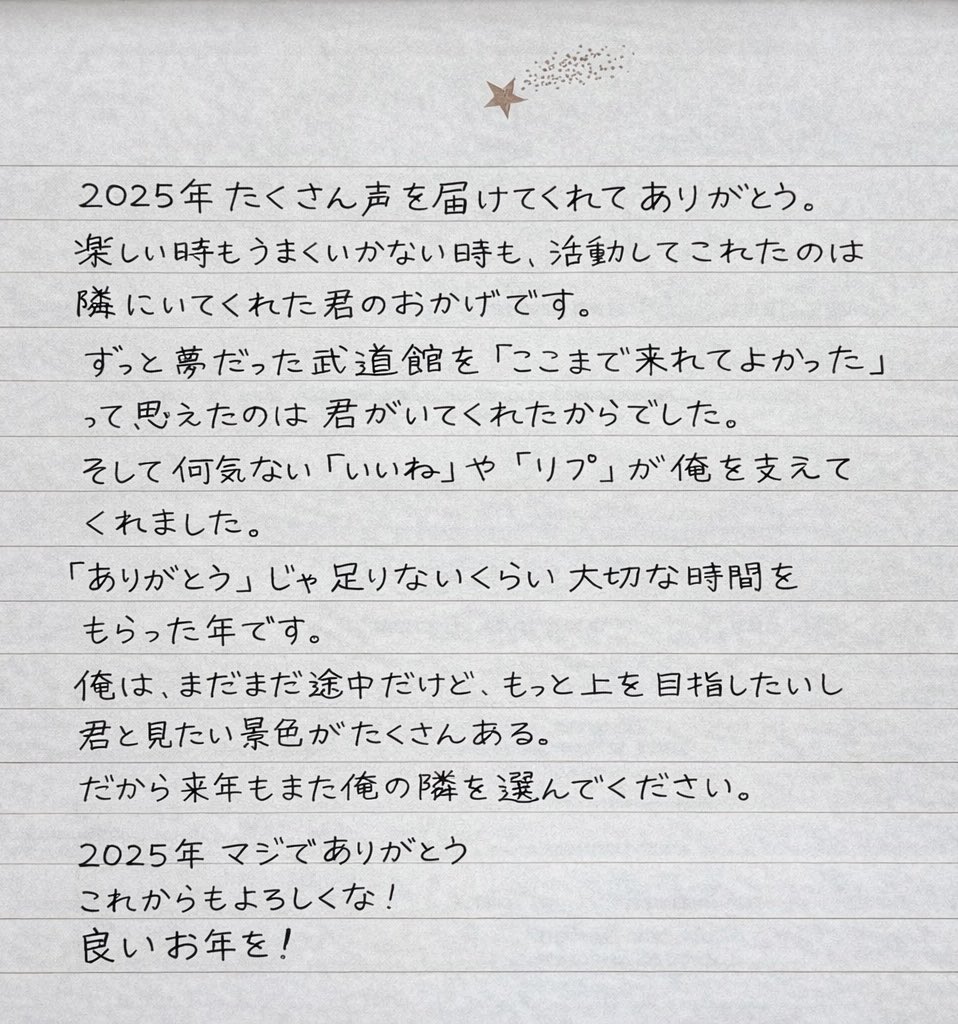 2025年 たくさん声を届けてくれて ありがとう。
楽しい時もうまくいかない時も、活動してこれたのは
隣にいてくれた君のおかげです。
ずっと夢だった武道館を「ここまで来れてよかった」
って思えたのは 君がいてくれたからでした。
そして何気ない「いいね」や「リプ」が俺を支えて
くれました。
「ありがとう」じゃ足りないくらい大切な時間を
もらった年です。
俺は、まだまだ途中だけど、もっと上を目指したいし
君と見たい景色がたくさんある。
だから来年もまた俺の隣を選んでください。
2025年 マジでありがとう
これからもよろしくな!
良いお年を!